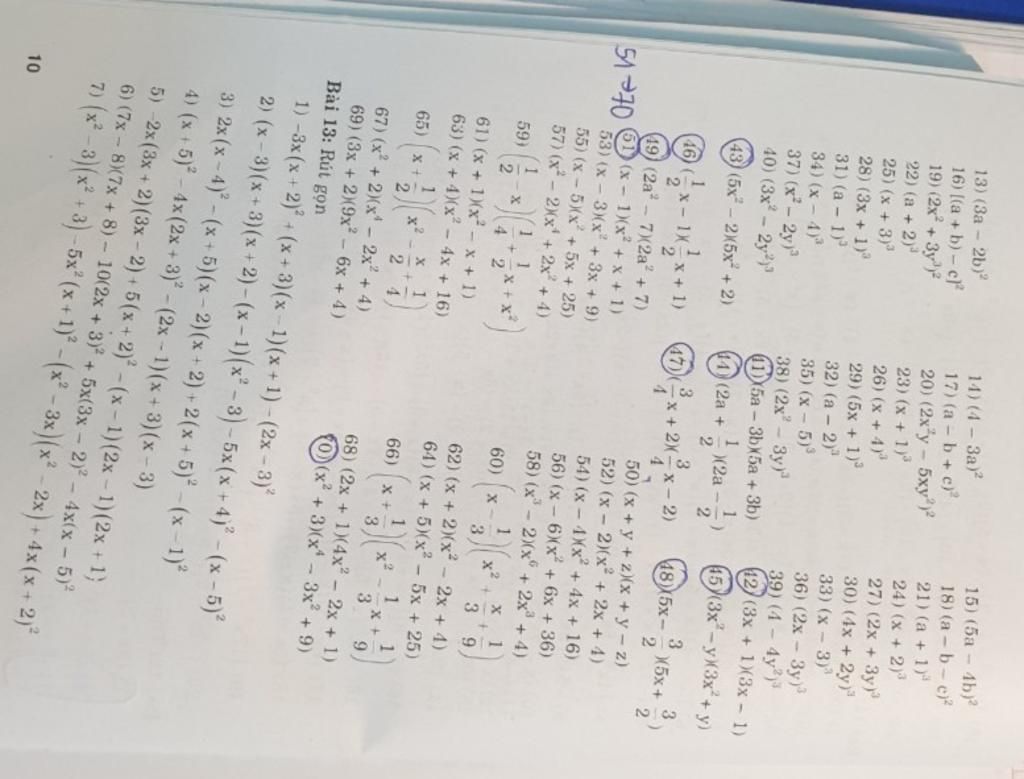 13) (3a − 2b)² 14) (4 − 3a)² 15) (5a − 4b)²
16) [(a + b) − c]² 17) (a − b + c)² 18) (a − b − c)²
19) (2x² + 3y³)² 20) (2x²y − 5xy²)² 21) (a + 1)³
22) (a + 2)³ 23) (x + 1)³ 24) (x + 2)³
25) (x + 3)³ 26) (x + 4)³ 27) (2x + 3y)³
28) (3x + 1)³ 29) (5x + 1)³ 30) (4x + 2y)³
31) (a − 1)³ 32) (a − 2)³ 33) (x − 3)³
34) (x − 4)³ 35) (x − 5)³ 36) (2x − 3y)³
37) (x² − 2y)³ 38) (2x² − 3y)³ 39) (4 − 4y²)³
40) (3x² − 2y²)³ 41) (5a − 3b)(5a + 3b) 42) (3x + 1)(3x − 1)
43) (5x² − 2)(5x² + 2) 44) (2a + 1/2)(2a − 1/2) 45) (3x² − y)(3x² + y)
46) (1/2 x − 1)(1/2 x + 1) 47) (3/4 x + 2)(3/4 x − 2) 48) (5x − 3/2)(5x + 3/2)
49) (2a² − 7)(2a² + 7) 50) (x + y + z)(x + y − z)
51 → 70
51) (x − 1)(x² + x + 1) 52) (x − 2)(x² + 2x + 4)
53) (x − 3)(x² + 3x + 9) 54) (x − 4)(x² + 4x + 16)
55) (x − 5)(x² + 5x + 25) 56) (x − 6)(x² + 6x + 36)
57) (x² − 2)(x⁴ + 2x² + 4) 58) (x³ − 2)(x⁶ + 2x³ + 4)
59) (1/2 − x)(1/4 + 1/2 x + x²) 60) (x − 1/3)(x² + x/3 + 1/9)
61) (x + 1)(x² − x + 1) 62) (x + 2)(x² − 2x + 4)
63) (x + 4)(x² − 4x + 16) 64) (x + 5)(x² − 5x + 25)
65) (x + 1/2)(x² − x/2 + 1/4) 66) (x + 1/3)(x² − 1/3 x + 1/9)
67) (x² + 2)(x⁴ − 2x² + 4) 68) (2x + 1)(4x² − 2x + 1)
69) (3x + 2)(9x² − 6x + 4) 70) (x² + 3)(x⁴ − 3x² + 9)
Bài 13: Rút gọn
1) −3x(x + 2)² + (x + 3)(x − 1)(x + 1) − (2x − 3)²
2) (x − 3)(x + 3)(x + 2) − (x − 1)(x² − 3) − 5x(x + 4)² − (x − 5)²
3) 2x(x − 4)² − (x + 5)(x − 2)(x + 2) + 2(x + 5)² − (x − 1)²
4) (x + 5)² − 4x(2x + 3)² − (2x − 1)(x + 3)(x − 3)
5) −2x(3x + 2)(3x − 2) + 5(x + 2)² − (x − 1)(2x − 1)(2x + 1)
6) (7x − 8)(7x + 8) − 10(2x + 3)² + 5x(3x − 2)² − 4x(x − 5)²
7) (x² − 3)(x² + 3) − 5x²(x + 1)² − (x² − 3x)(x² − 2x) + 4x(x + 2)²
10